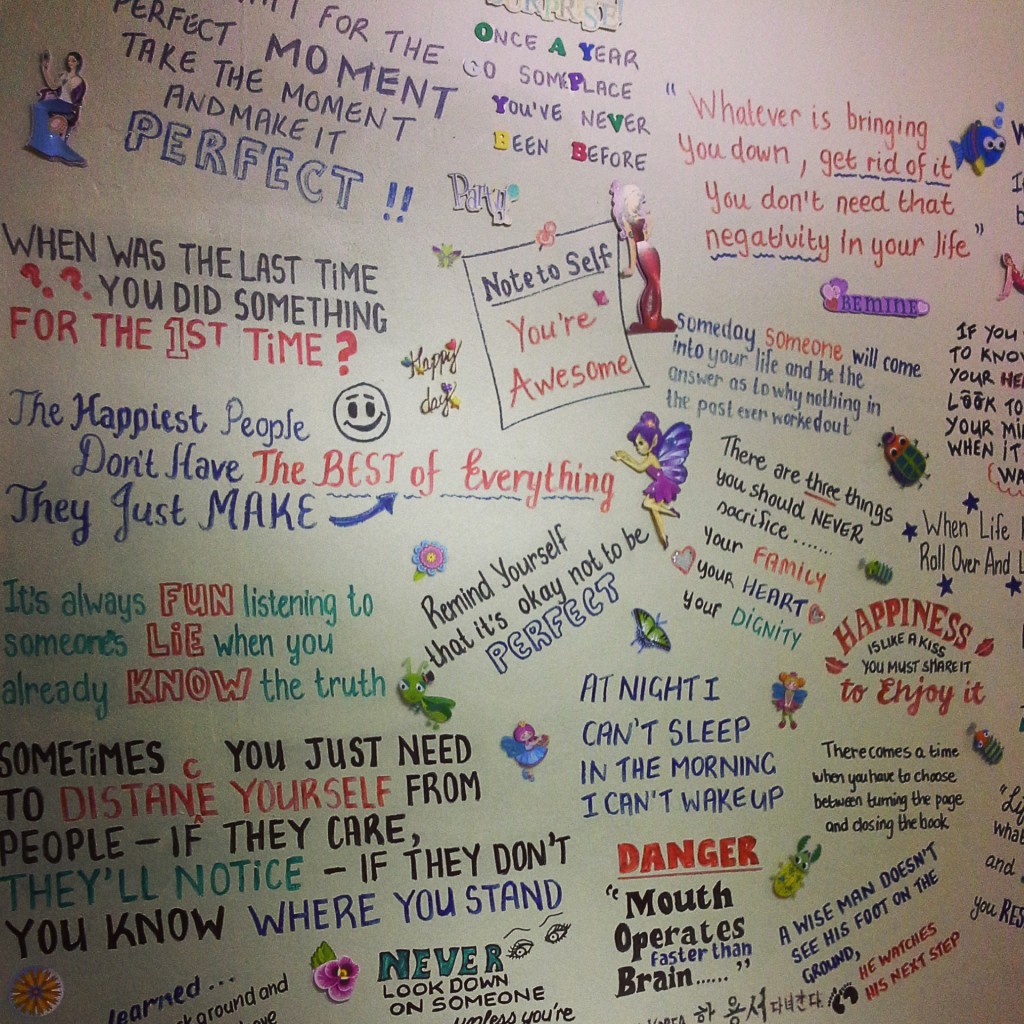 FOR THE
PERFECT MOMENT
TAKE THE MOMENT
AND MAKE IT
PERFECT !!
SURPRISE!
ONCE A YEAR
GO SOMEPLACE
YOU'VE NEVER
BEEN BEFORE
"Whatever is bringing
You down, get rid of it
You don't need that
negativity in your life"
Party
WHEN WAS THE LAST TIME
?.?. YOU DID SOMETHING
FOR THE 1ST TIME?
Note to Self
You're
Awesome
BE MINE
Happy
day
someday someone will come
into your life and be the
answer as to why nothing in
the past ever worked out
IF YOU
TO KNOW
YOUR
LOOK TO
YOUR
WHEN IT
The Happiest People
Don't Have The BEST of Everything
They Just MAKE
There are three things
you should NEVER
sacrifice.......
your FAMILY
your HEART
your DIGNITY
When Life
Roll Over And
Remind Yourself
that it's okay not to be
PERFECT
It's always FUN listening to
someone's LiE when you
already KNOW the truth
HAPPINESS
IS LIKE A KISS
YOU MUST SHARE IT
to Enjoy it
AT NIGHT I
CAN'T SLEEP
IN THE MORNING
I CAN'T WAKE UP
SOMETIMES YOU JUST NEED
c
TO DISTANE YOURSELF FROM
PEOPLE – IF THEY CARE,
THEY'LL NOTICE – IF THEY DON'T
YOU KNOW WHERE YOU STAND
There comes a time
when you have to choose
between turning the page
and closing the book
what
and
you
DANGER
"Mouth
Operates
faster than
Brain......"
A WISE MAN DOESN'T
SEE HIS FOOT ON THE
GROUND,
HE WATCHES
HIS NEXT STEP
learned...
ground and
NEVER
LOOK DOWN
ON SOMEONE
unless you're
KOREA 하 용서 다녀간다.